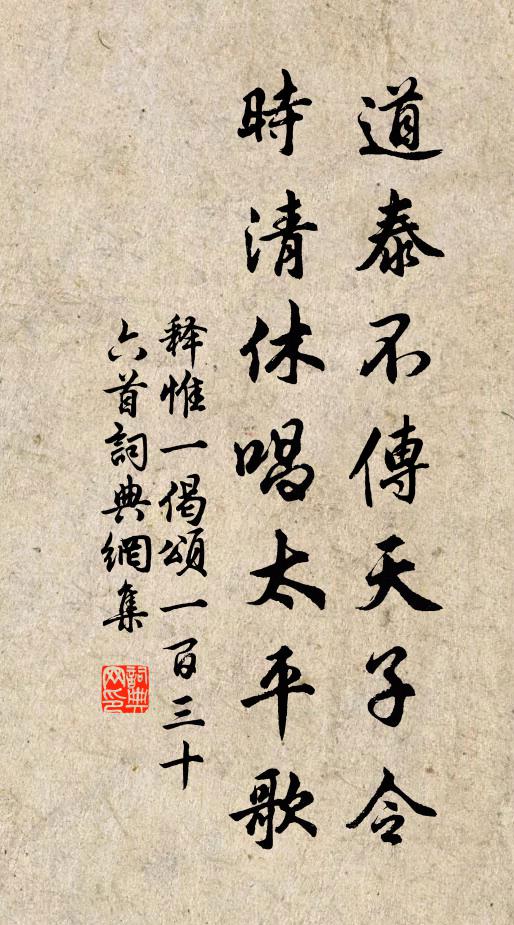 道泰不傳天子令
時清休唱太平歌
释惟一偈頌一百三十
六首詞典網集
詞典网印